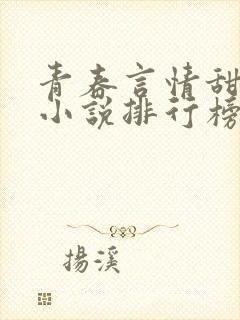 青春言情甜
小說排行榜
揚溪